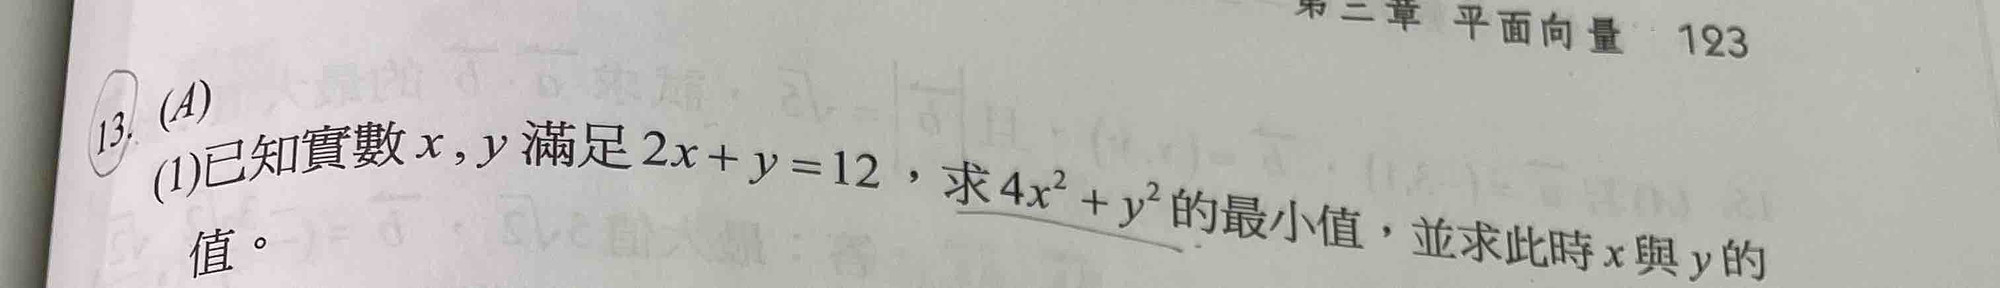 第三章 平面向量 123
13. (A)
(1)已知實數 x , y 滿足 2x + y = 12，求 4x² + y² 的最小值，並求此時 x 與 y 的
值。